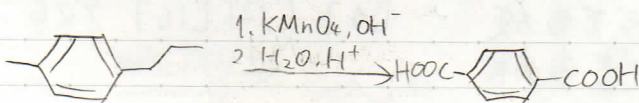 1. KMnO4, OH⁻
2 H2O, H⁺
HOOC COOH